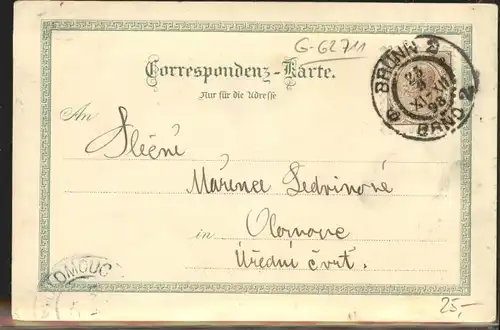 G-G2711
Correspondenz-Karte.
Nur für die Adresse
BRÜNN 2
BRNO 2
98
An
Slečně
Mařence Ledvinové
in Olomouc
Úřední čtvrt.
OLOMOUC
25,-